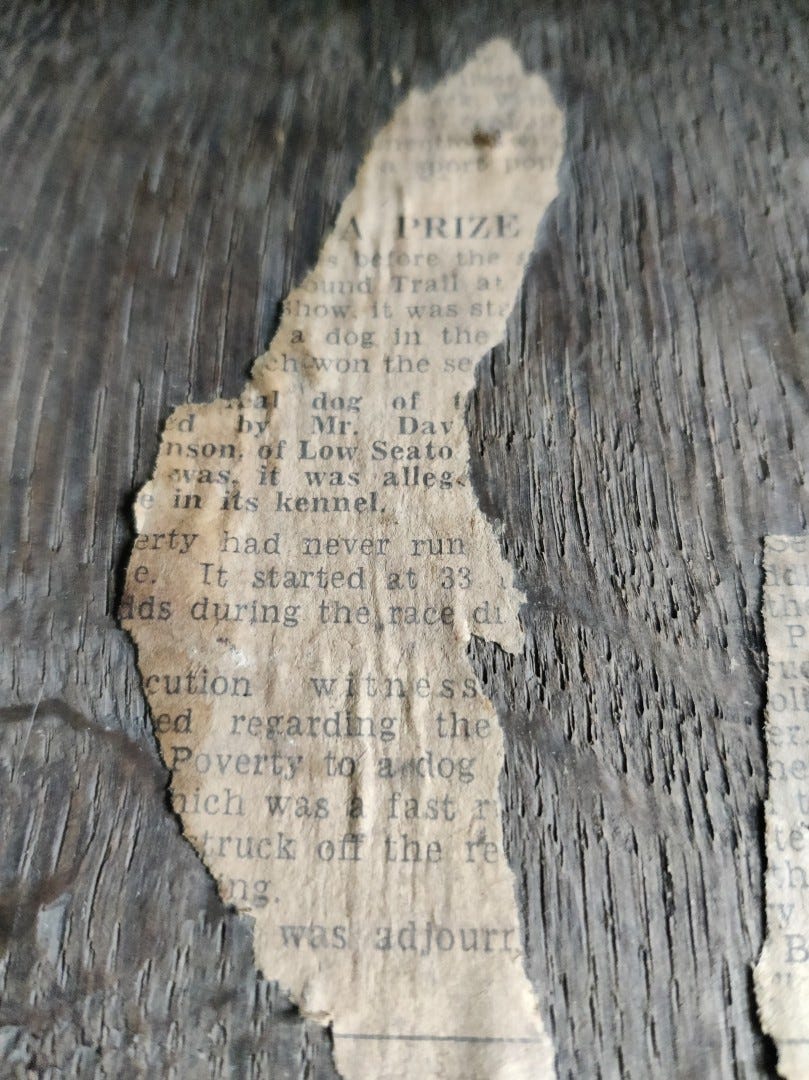 a sport pop
A PRIZE
s before the
ound Trail at
show, it was sta
a dog in the
ch won the se
eal dog of t
ed by Mr. Dav
nson, of Low Seato
was, it was alleg
e in its kennel.
erty had never run
e. It started at 33
dds during the race di
cution witness
ed regarding the
Poverty to a dog
hich was a fast r
truck off the re
ng.
was adjourn